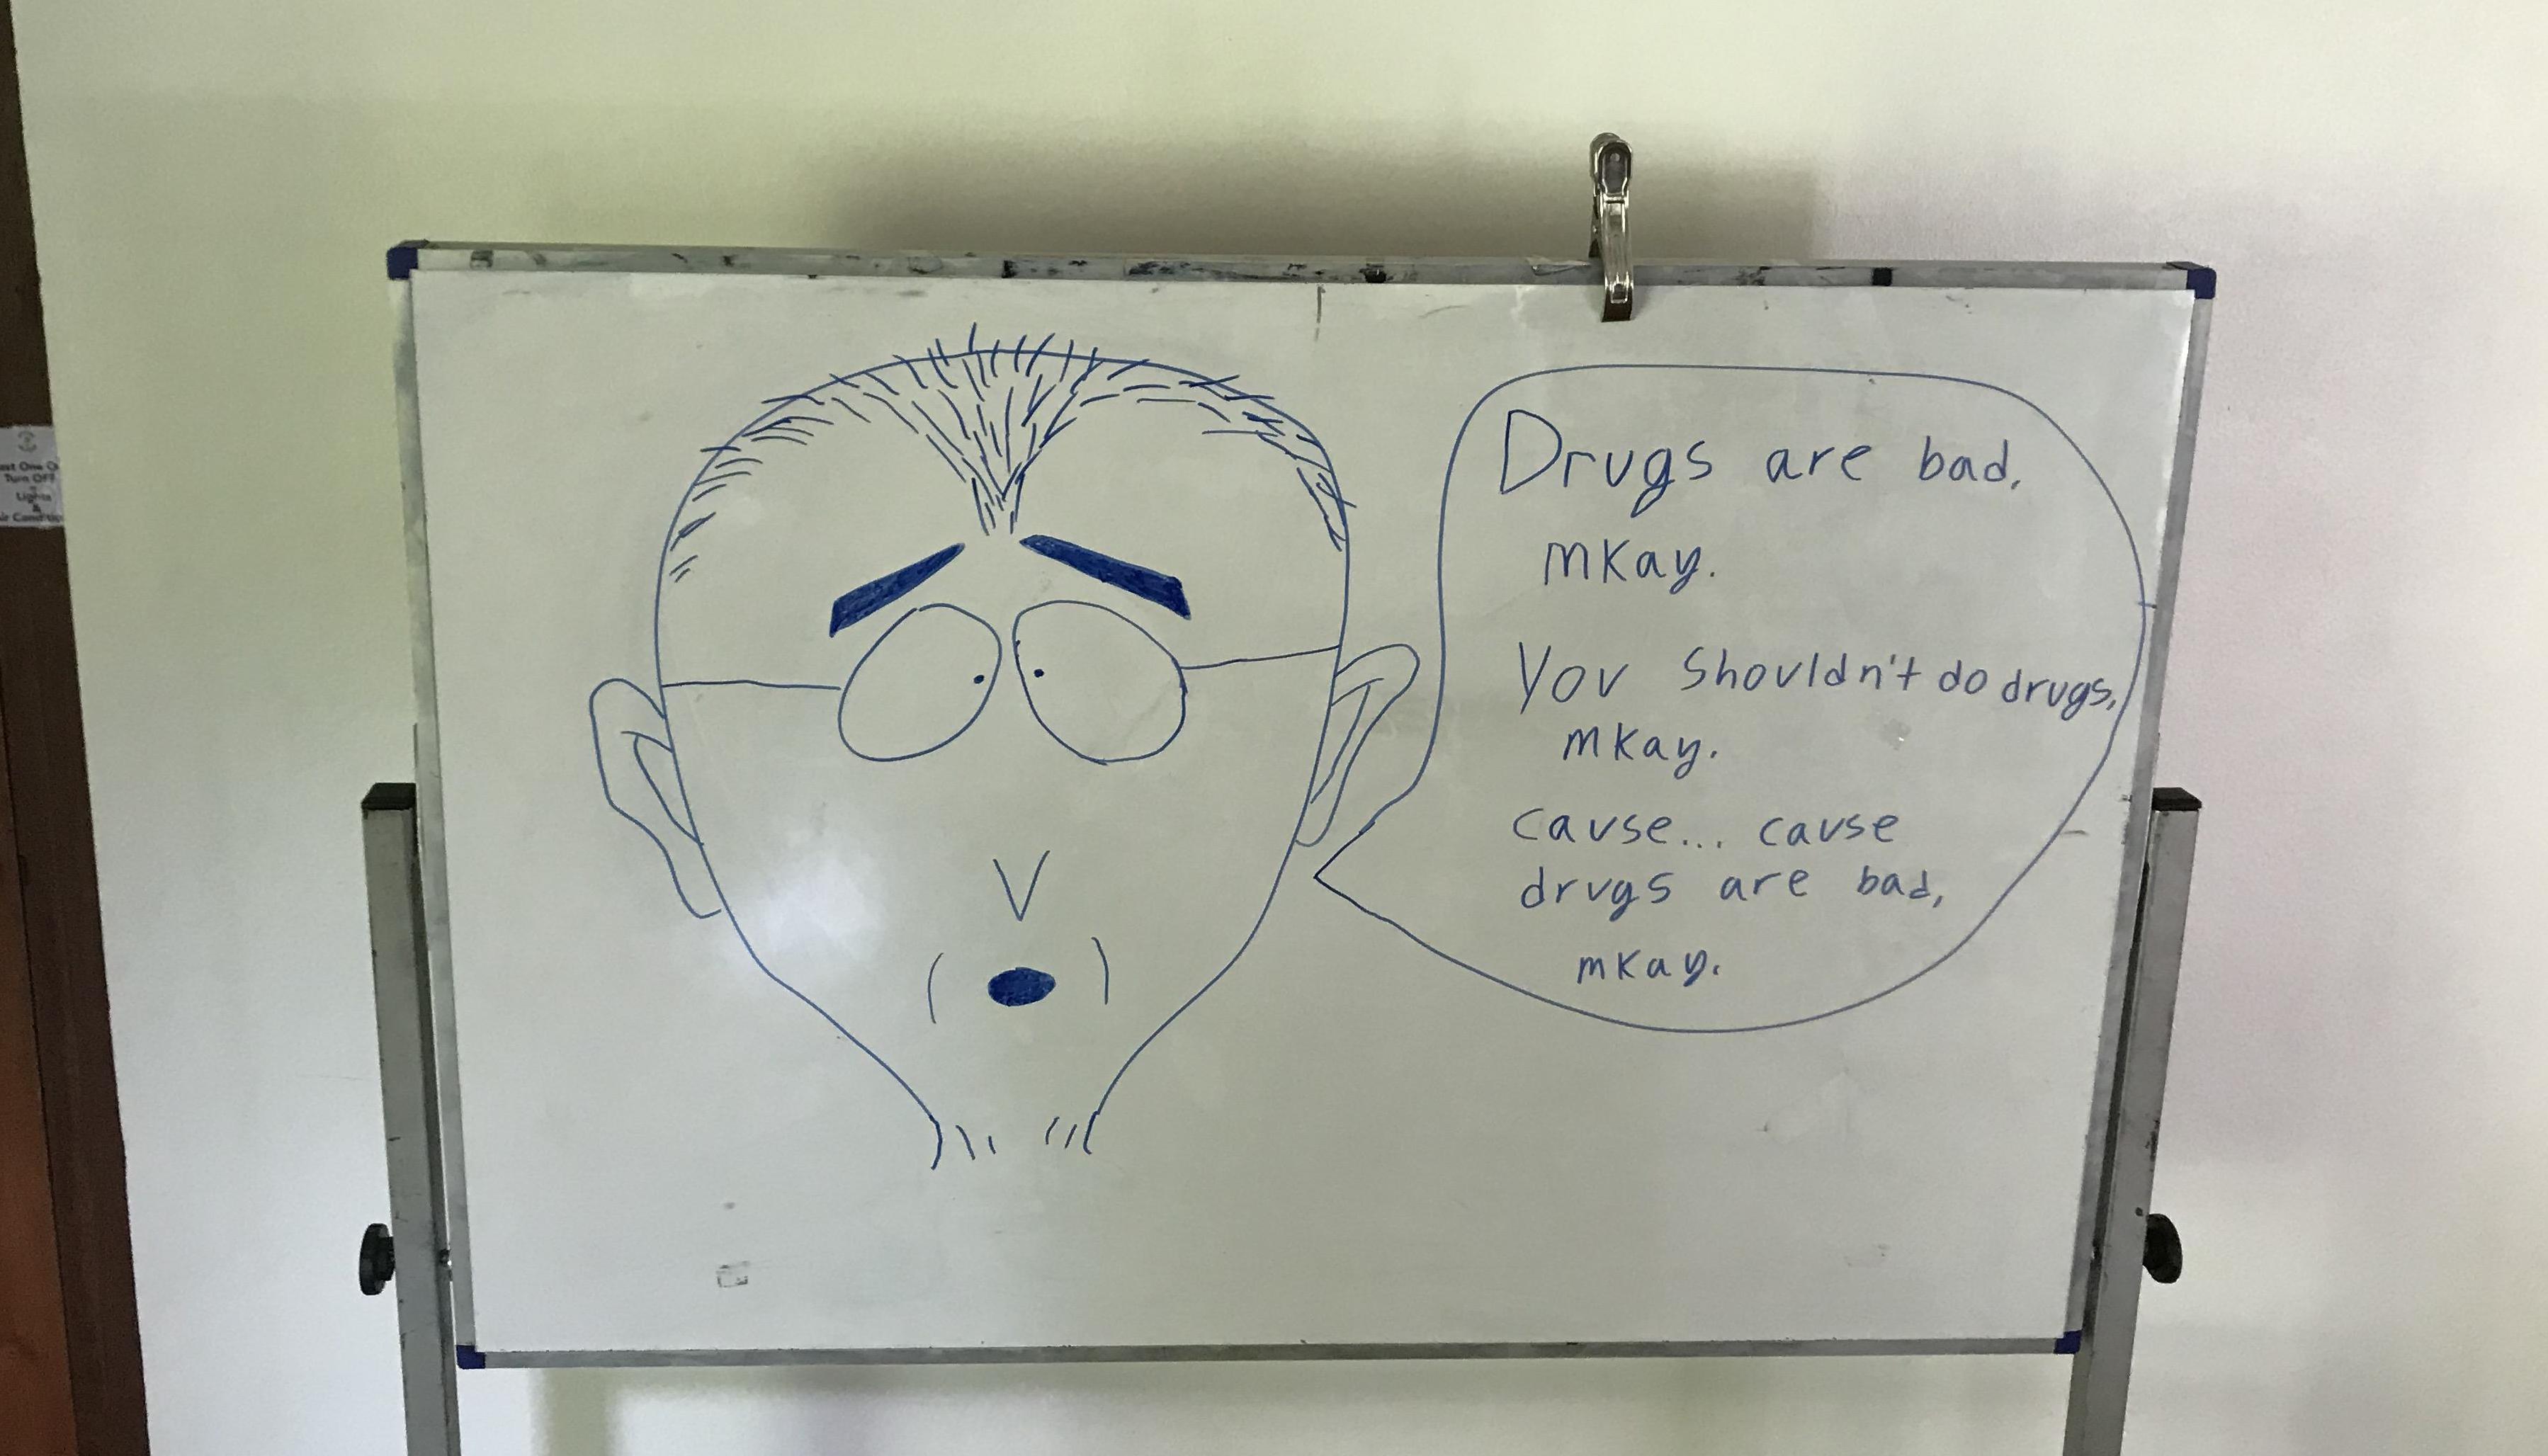 ast One O
Turn OFF
Lights
&
ir Conditio
Drugs are bad,
mkay.
You shouldn't do drugs,
mkay.
cause... cause
drugs are bad,
mkay.